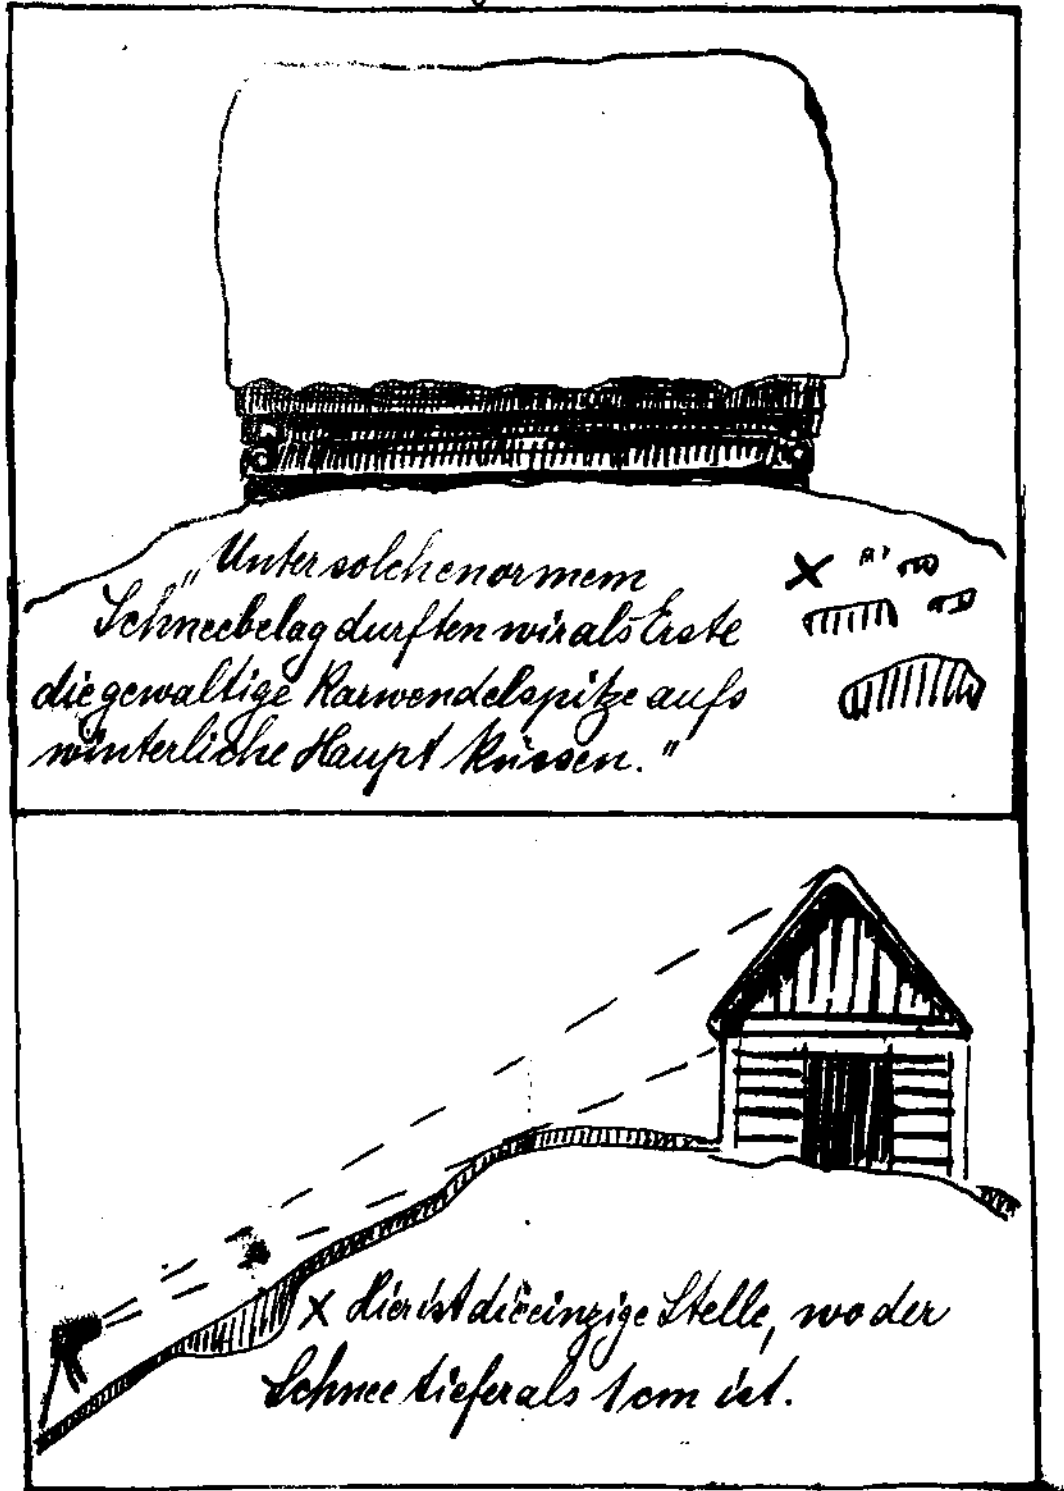 „Unter solch enormem
Schneebelag durften wir als Erste
die gewaltige Karwendelspitze aufs
winterliche Haupt küssen."
x Hier ist die einzige Stelle, wo der
Schnee tiefer als 1 cm ist.